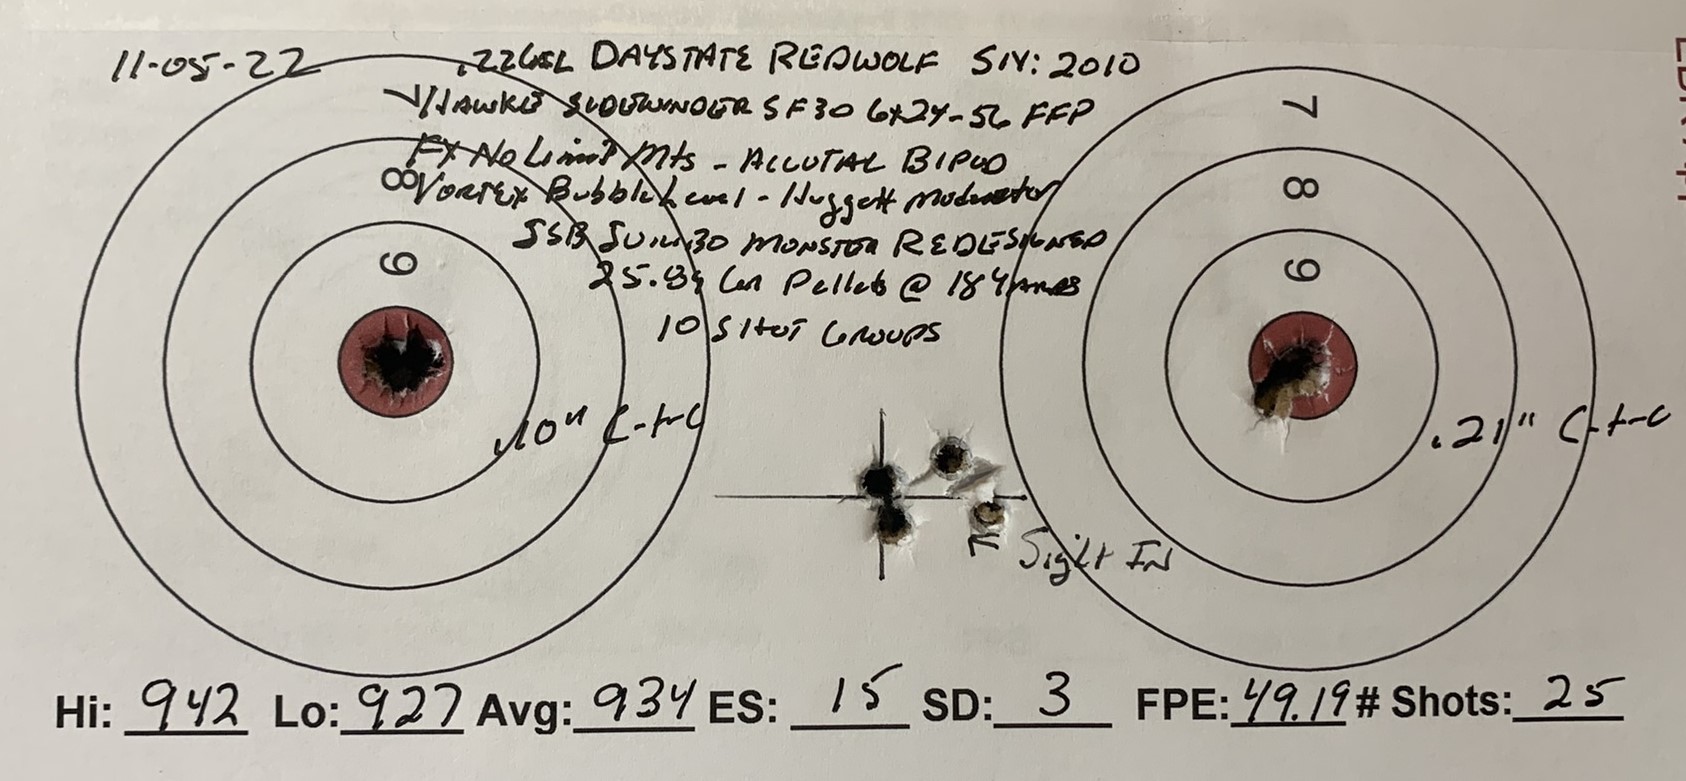 11-05-22 .22CAL DAYSTATE REDWOLF S/N: 2010
W/HAWKE SIDEWINDER SF30 6x24-56 FFP
7
FX No Limit Mts - ACCUTAC BIPOD
8 Vortex Bubble Level - Huggett Moderator 8
SSB 30 MONSTER REDESIGNED
9 25.39g Pellets @ 18 YARDS 9
10 SHOT GROUPS
.10" C-t-C .21" C-t-C
Sight IN
Hi: 942 Lo: 927 Avg: 934 ES: 15 SD: 3 FPE: 49.19 # Shots: 25